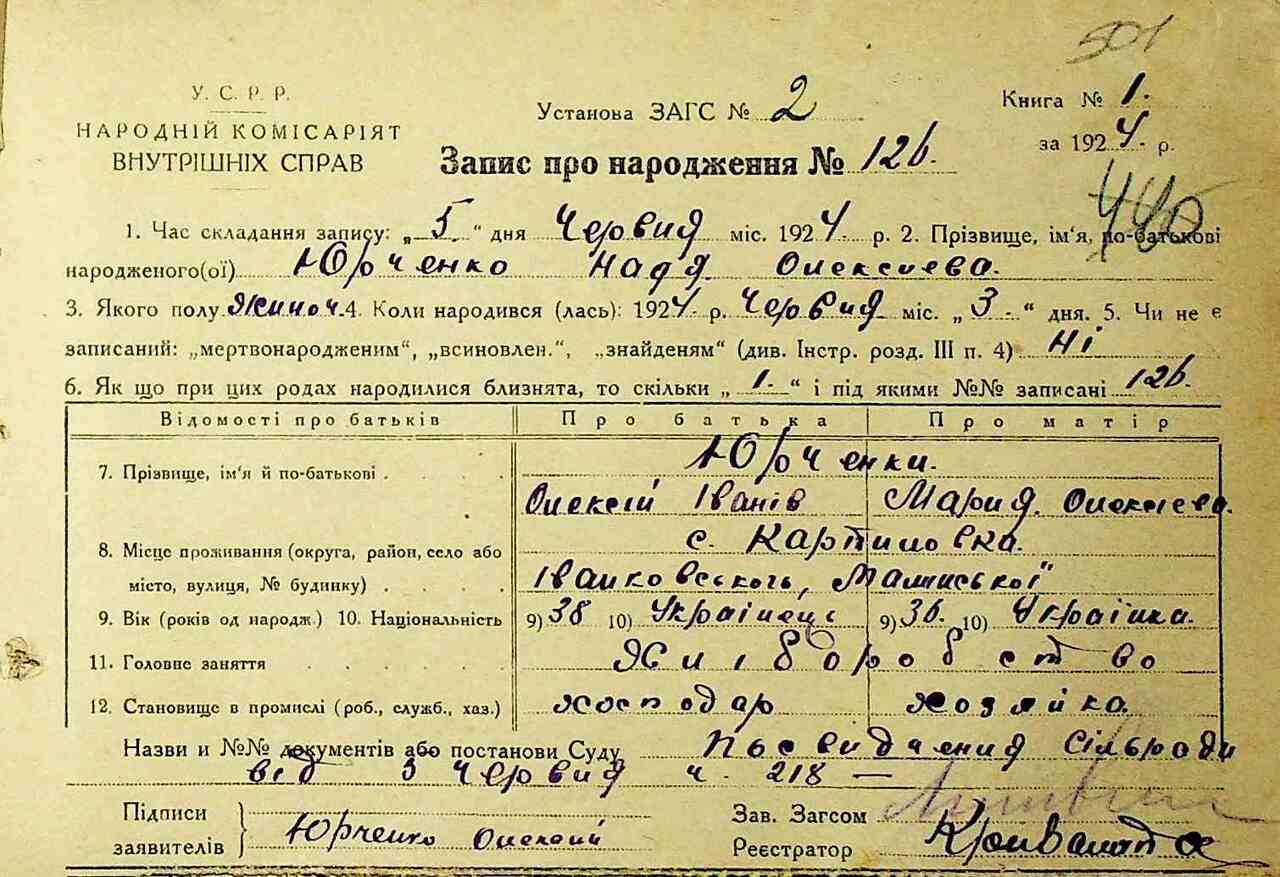 501
У. С. Р. Р.
НАРОДНІЙ КОМІСАРІЯТ
ВНУТРІШНІХ СПРАВ
Установа ЗАГС № 2
Книга № 1.
за 1924. р.
Запис про народження № 126.
440
1. Час складання запису: „5.“ дня Червня міс. 1924. р. 2. Прізвище, ім'я, по-батькові
народженого(ої) Юрченко Надя Олексієва.
3. Якого полу жиноч. 4. Коли народився (лась): 1924. р. Червня міс. „3.“ дня. 5. Чи не є
записаний: „мертвонародженим“, „всиновлен.“, „знайденям“ (див. Інстр. розд. III п. 4) Ні
6. Як що при цих родах народилися близнята, то скільки „1.“ і під якими №№ записані 126.
Відомості про батьків Про батька Про матір
7. Прізвище, ім'я й по-батькові . . . . Юрченки.
Олексій Іванів Мария Олексієва.
8. Місце проживання (округа, район, село або с. Картиловка.
місто, вулиця, № будинку) . . . . Іванковського, Малинської
9. Вік (років од народж.) 10. Національність 9) 38 10) Українець 9) 36. 10) Українка.
11. Головне заняття . . . . . Хліборобство
12. Становище в промислі (роб., служб., хаз.) господар хозяйка.
Назви и №№ документів або постанови Суду Посвидчення Сільради
від 3 червня ч. 218 —
Підписи
заявителів Юрченко Олексій
Зав. Загсом
Реєстратор